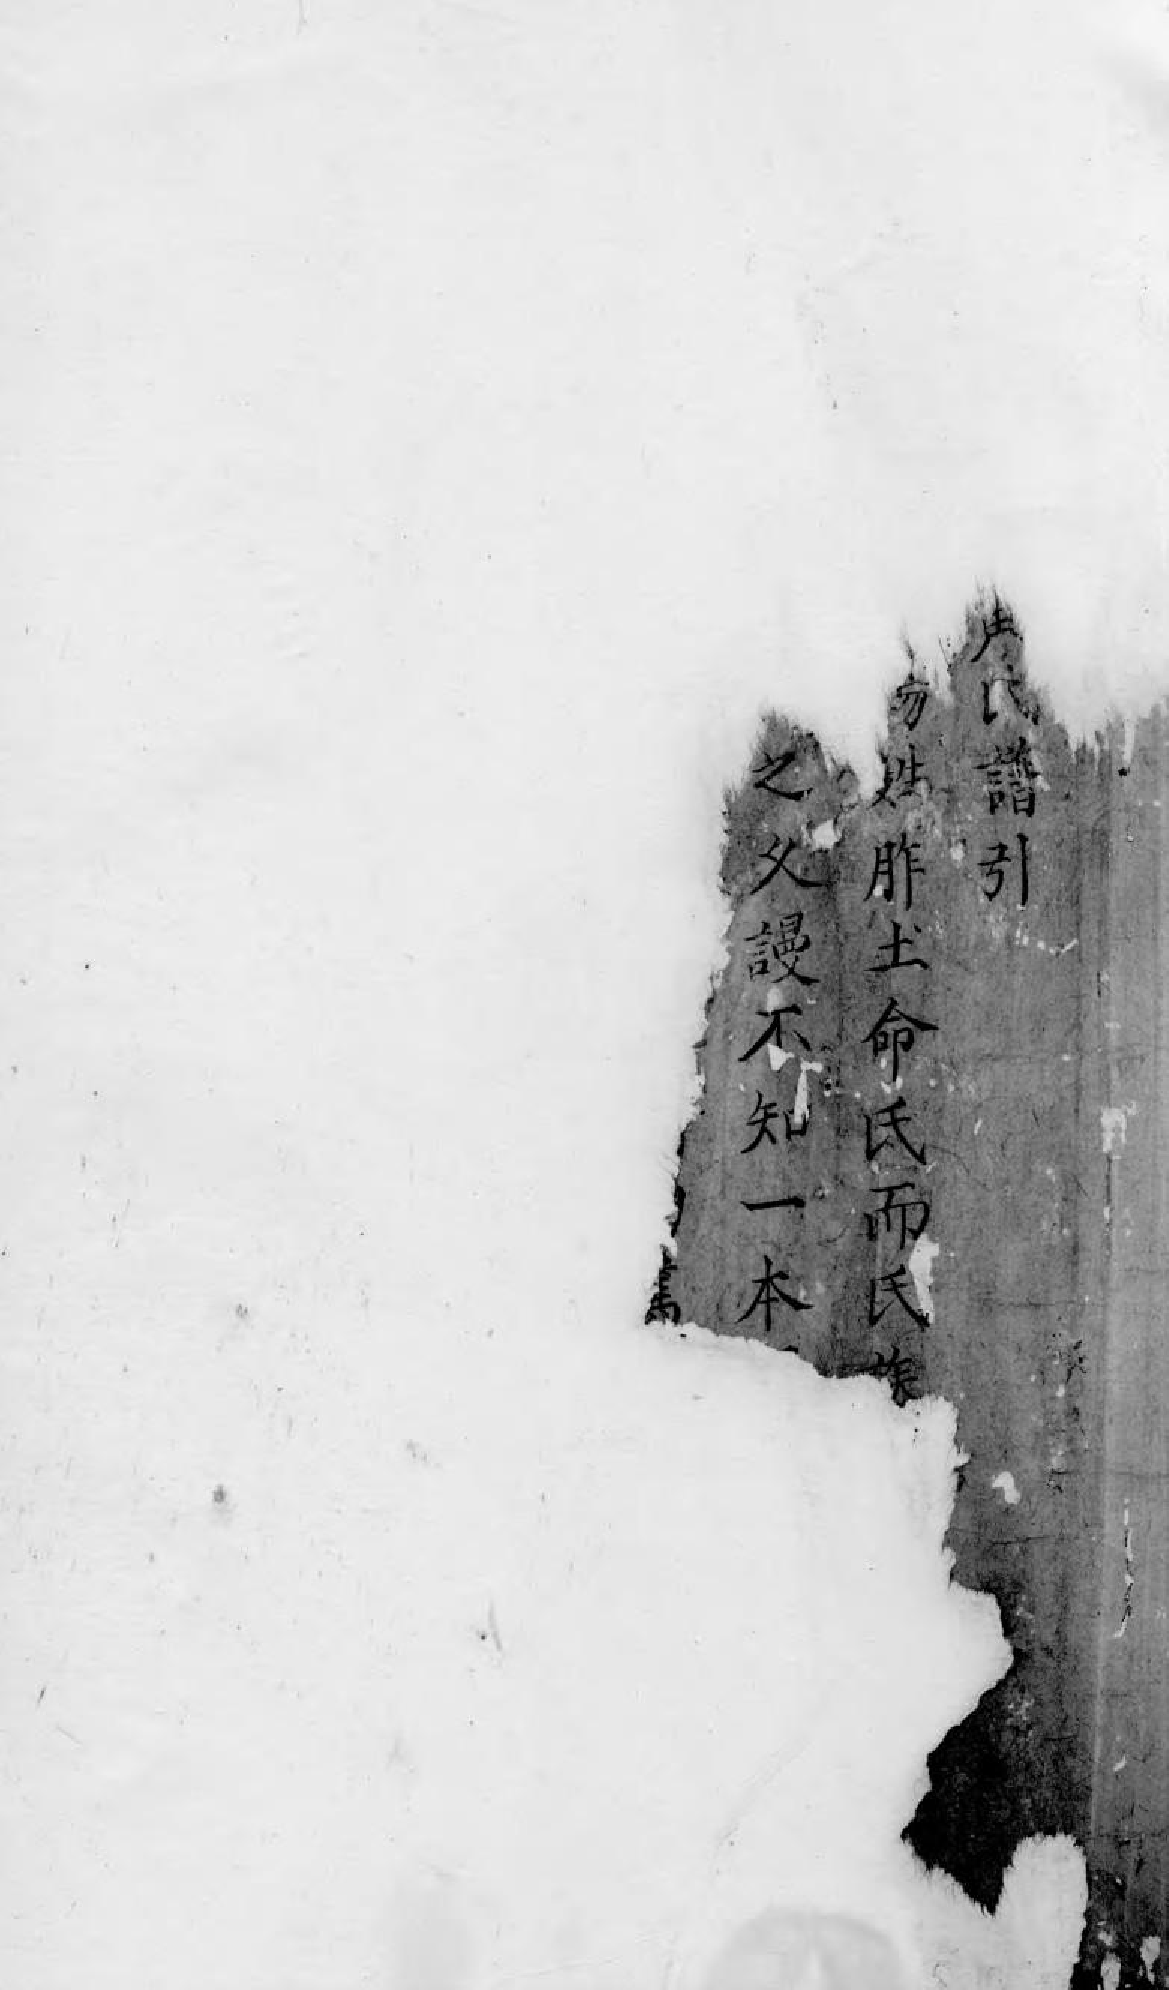 氏譜引
姓胙土命氏而氏族
之久謾不知一本